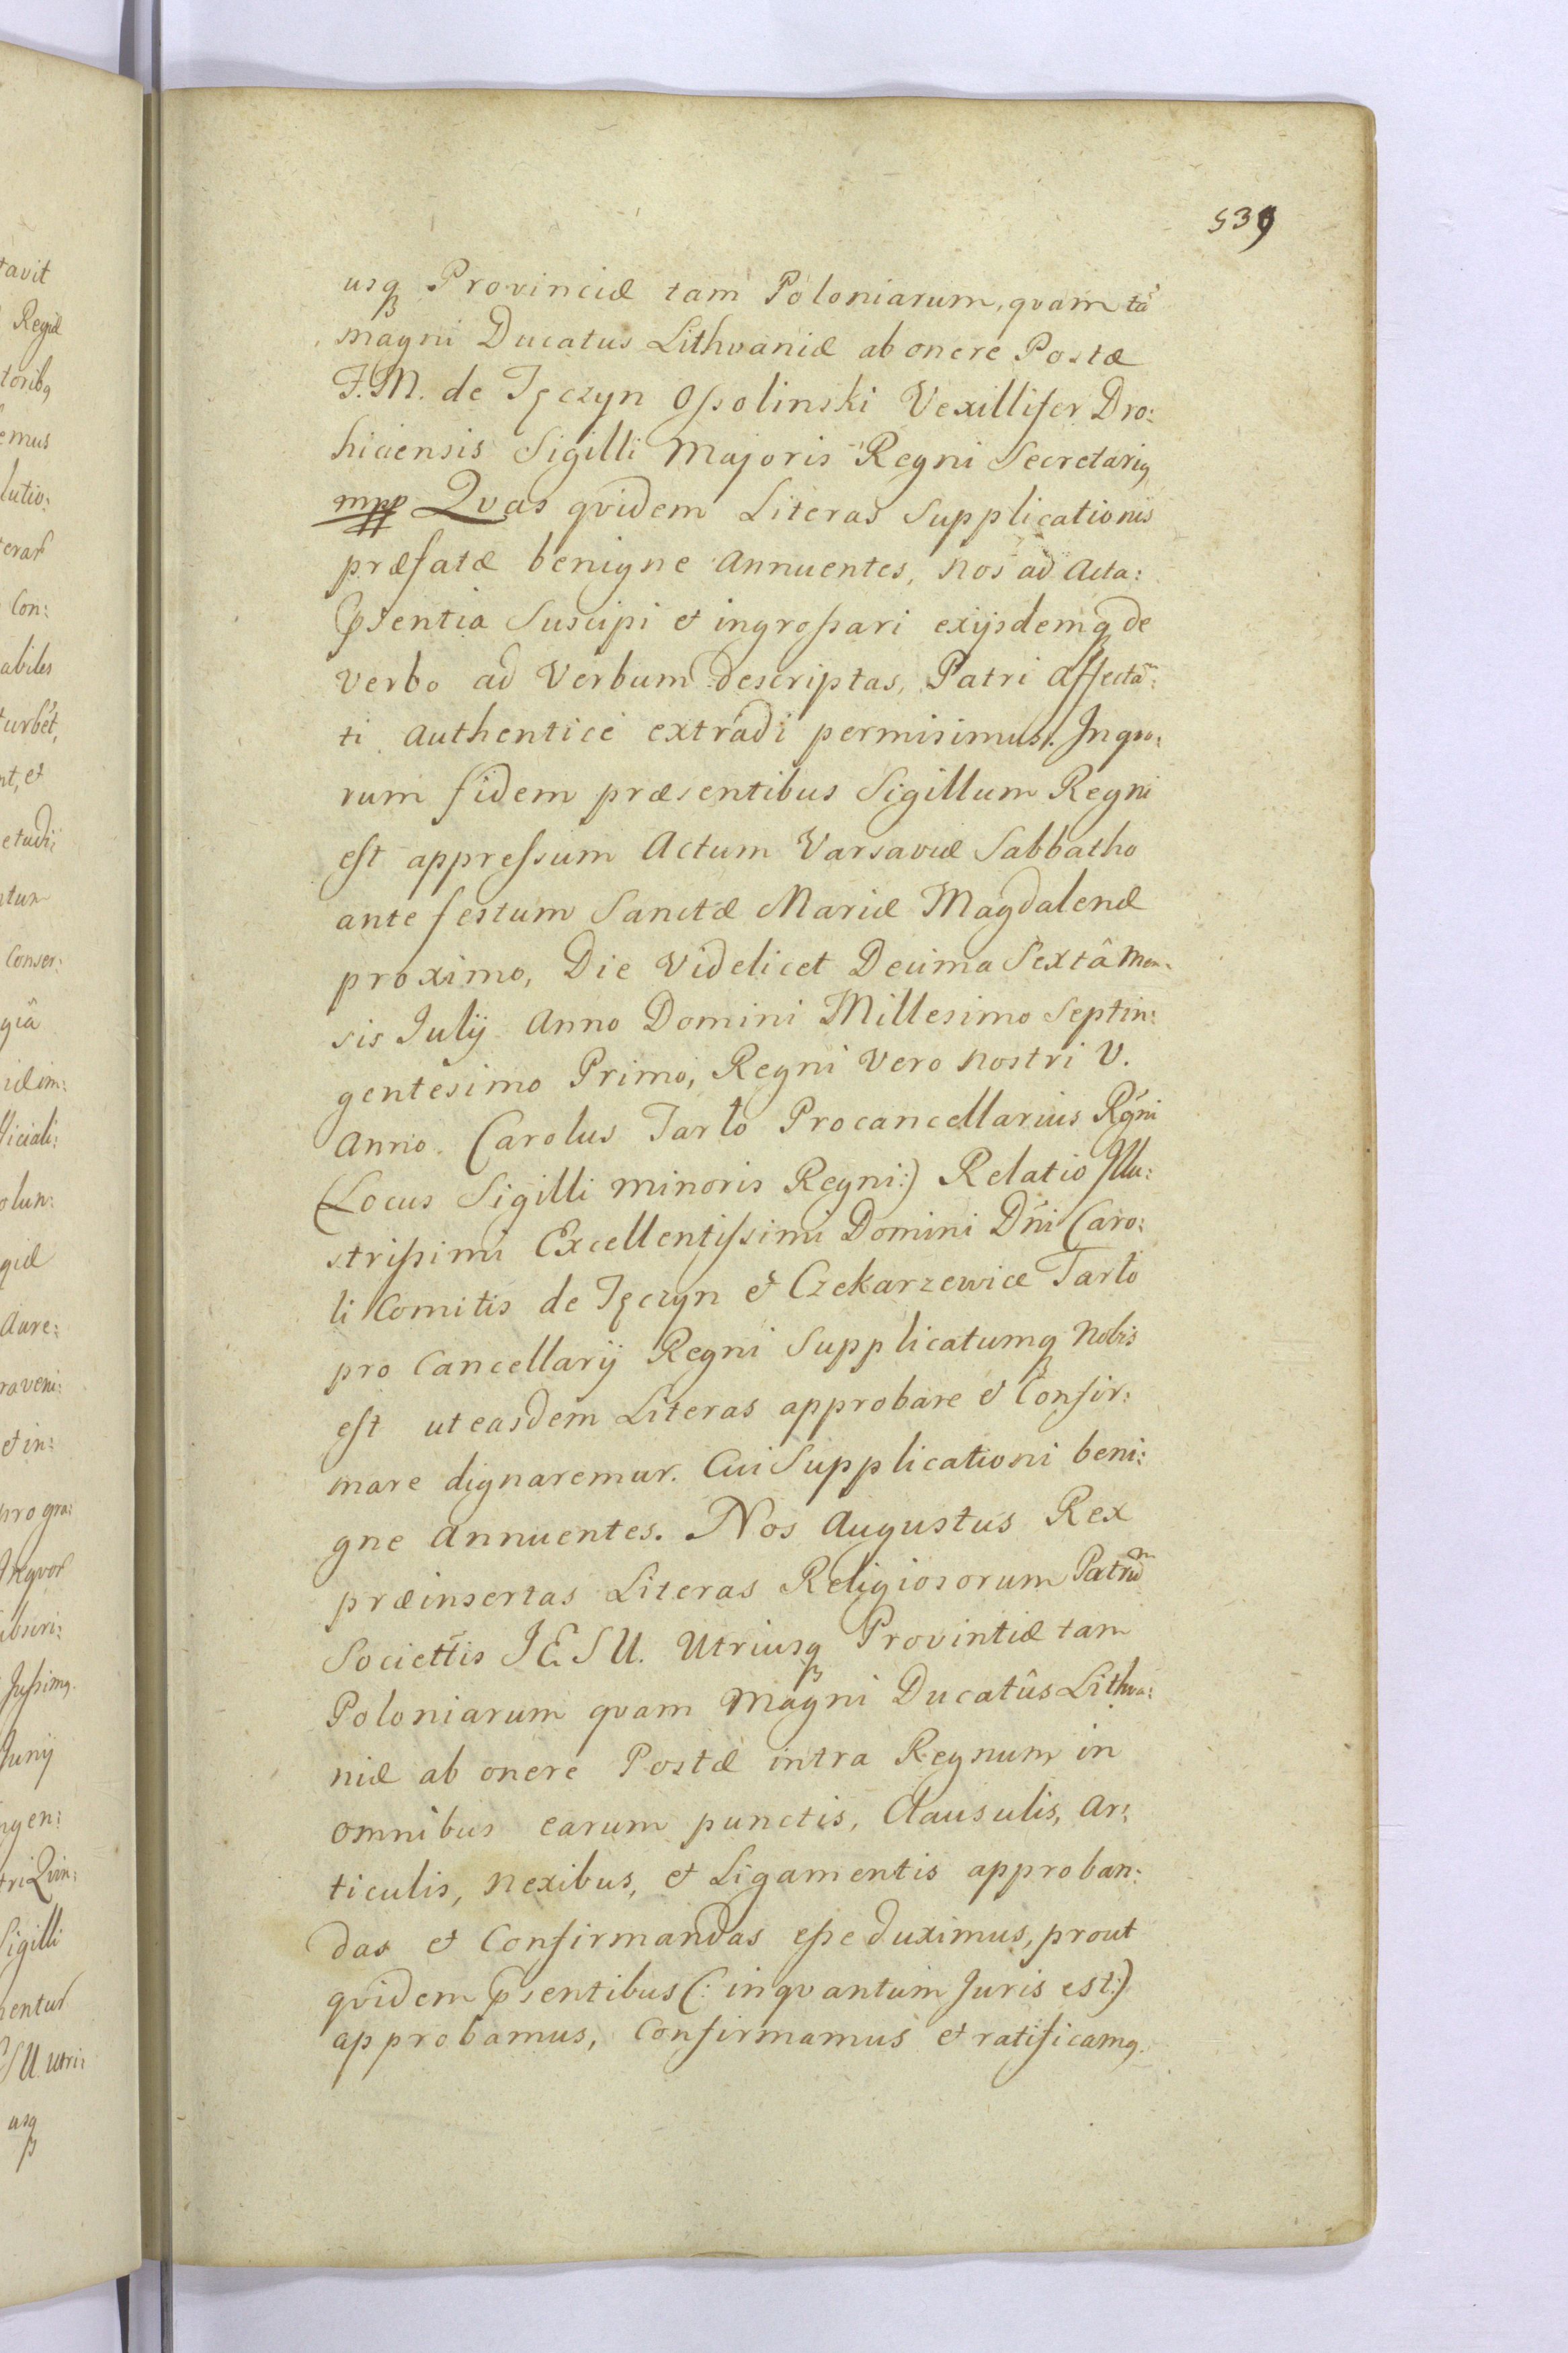 539
usq Provinciæ tam Poloniarum, qvam tã
magni Ducatus Lithvaniæ ab onere Postæ
F. M. de Tęczyn Ossolinski Vexillifer Dro:
hiciensis Sigilli Majoris Regni Secretariq
mpp Qvas qvidem Literas Supplicationis
præfatæ benigne Annuentes, nos ad Acta:
pŝentia Suscipi et ingrossari exijsdemq de
verbo ad Verbum descriptas, Patri Affectã:
ti Authentice extradi permisimus. Inqvo:
rum fidem præsentibus Sigillum Regni
est appressum Actum Varsaviæ Sabbatho
ante festum Sanctæ Mariæ Magdalenæ
proximo, Die Videlicet Decima Sextâ Men:
sis Julij Anno Domini Millesimo Septin:
gentesimo Primo, Regni Vero nostri V.
Anno. Carolus Tarło Procancellarius Rgñi
(Locus Sigilli minoris Regni:) Relatio Illu:
strissimi Excellentissimi Domini Dñi Caro:
li Comitis de Tęczyn et Czekarzewice Tarło
pro Cancellarij Regni Supplicatumq nobis
est ut easdem Literas approbare et Confir:
mare dignaremur. Cui Supplicationi beni:
gne Annuentes. Nos Augustus Rex
præinsertas Literas Religiosorum Patrum
Societtis JESU. Utriusq Provintiæ tam
Poloniarum qvam Magni Ducatûs Lithva:
niæ ab onere Postæ intra Regnum in
omnibus earum punctis, Clausulis, Ar:
ticulis, nexibus, et Ligamentis approban:
das et Confirmandas esse duximus, prout
qvidem pŝentibus (: inqvantum Juris est:)
approbamus, Confirmamus et ratificamq.
tavit
Regiæ
toribq
emus
lutio:
Con:
abiles
turbēt,
nt, et
etudi:
Conser:
giâ
iciali:
olun:
giæ
Aure:
raveni:
et in:
pro gra:
Jussimq.
Junij
ngen:
Sigilli
ESU. utri:
usq